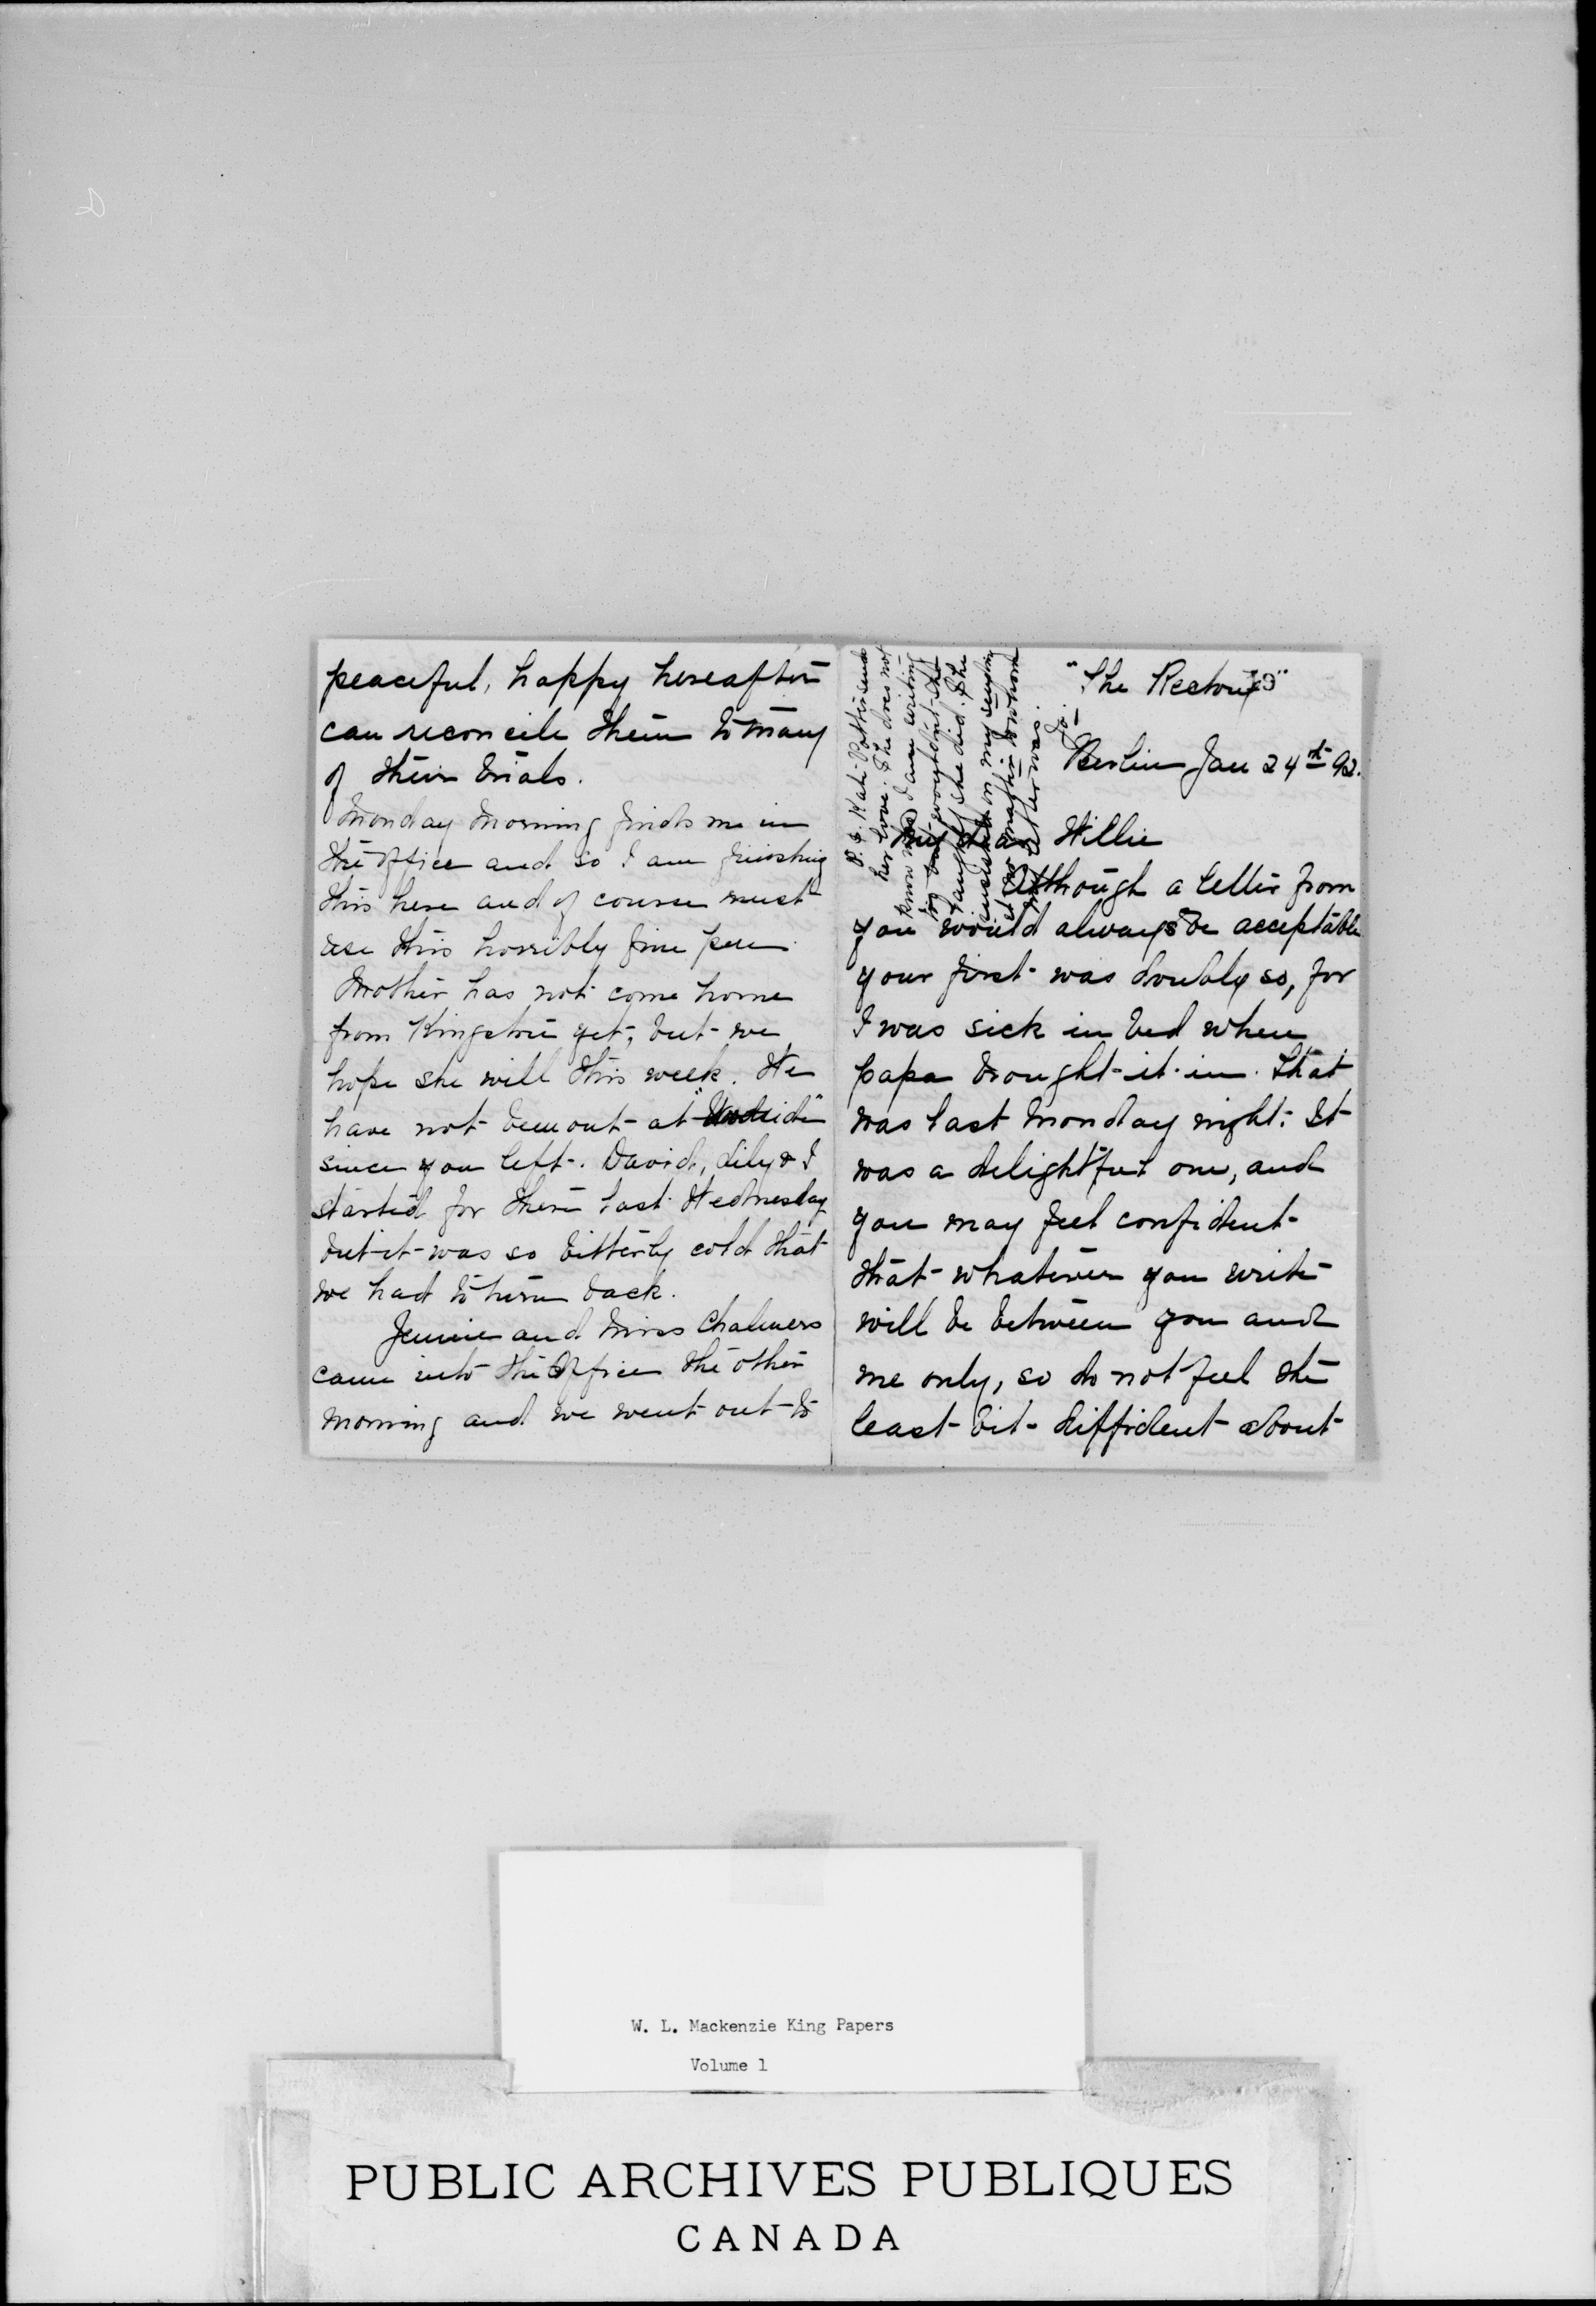 peaceful, happy hereafter
can reconcile them to many
of their trials.
Monday Morning finds me in
the office and so I am finishing
this here and of course must
use this horribly fine pen.
Mother has not come home
from Kingston yet, but we
hope she will this week. We
have not been out at
since you left. David, Lily & I
started for there last Wednesday
but it was so bitterly cold that
we had to turn back.
Jennie and Miss Chalmers
came into the Office the other
morning and we went out to
P.S. Kate Potter sends
her love. She does not
know I am writing
to
laugh if she did. She
insisted on my sending
it no matter to whom
the letter was.
Jo.
"The Rectory"
Berlin Jan 24th 92.
My dear Willie
Although a letter from
you would always be acceptable
your first was doubly so, for
I was sick in bed when
papa brought it in. That
was last Monday night. It
was a delightful one, and
you may feel confident
that whatever you write
will be between you and
me only, so do not feel the
least bit diffident about
W. L. Mackenzie King Papers
Volume 1
PUBLIC ARCHIVES PUBLIQUES
CANADA